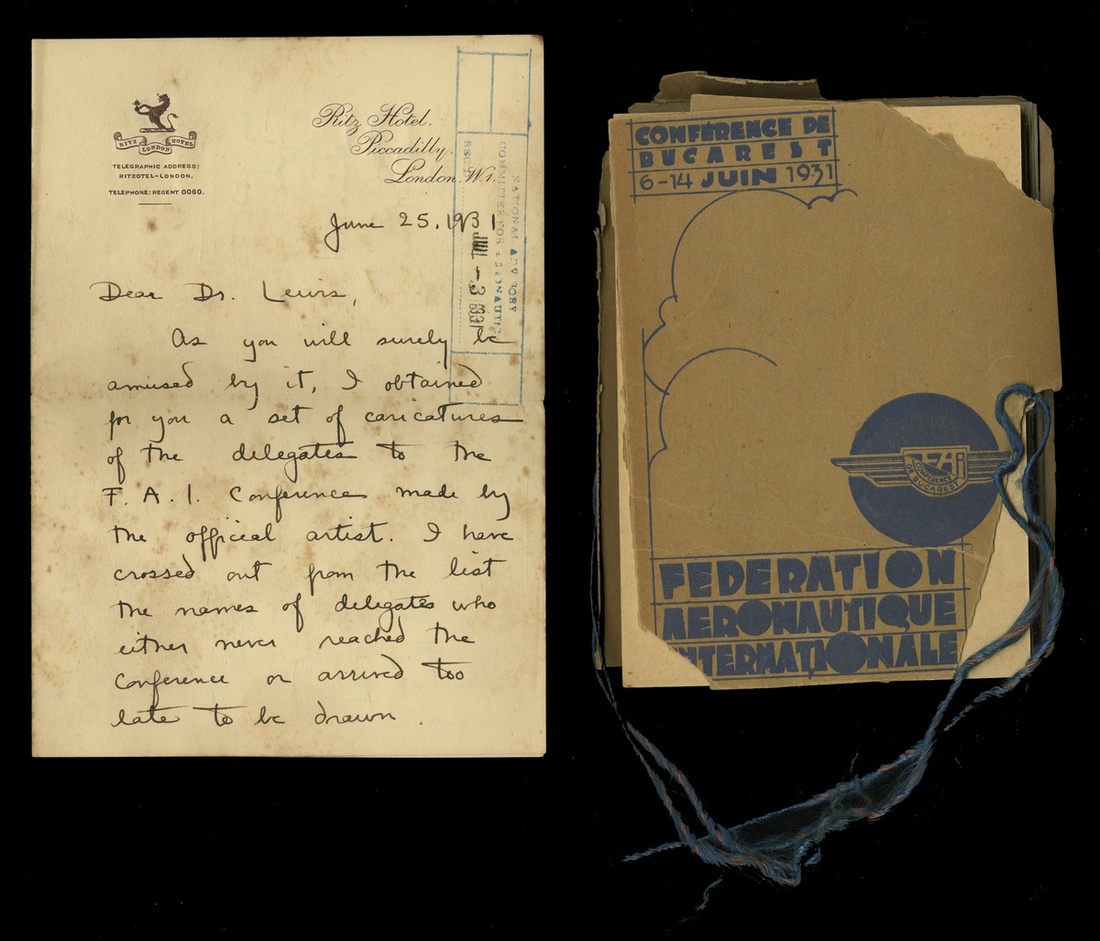 RITZ HOTEL
LONDON
TELEGRAPHIC ADDRESS:
RITZOTEL-LONDON.
TELEPHONE: REGENT 0060.
Ritz Hotel.
Piccadilly.
London. W.1.
NATIONAL ADV ORY
COMMITTEE FOR AERONAUTIC
REC'D
JUL -3 1931
June 25, 1931
Dear Dr. Lewis,
As you will surely be
amused by it, I obtained
for you a set of caricatures
of the delegates to the
F. A. I. Conference made by
the official artist. I have
crossed out from the list
the names of delegates who
either never reached the
conference or arrived too
late to be drawn.
CONFÉRENCE DE
BUCAREST
6-14 JUIN 1931
FAI
CONFERENCE
DE BUCAREST
FEDERATION
AERONAUTIQUE
INTERNATIONALE